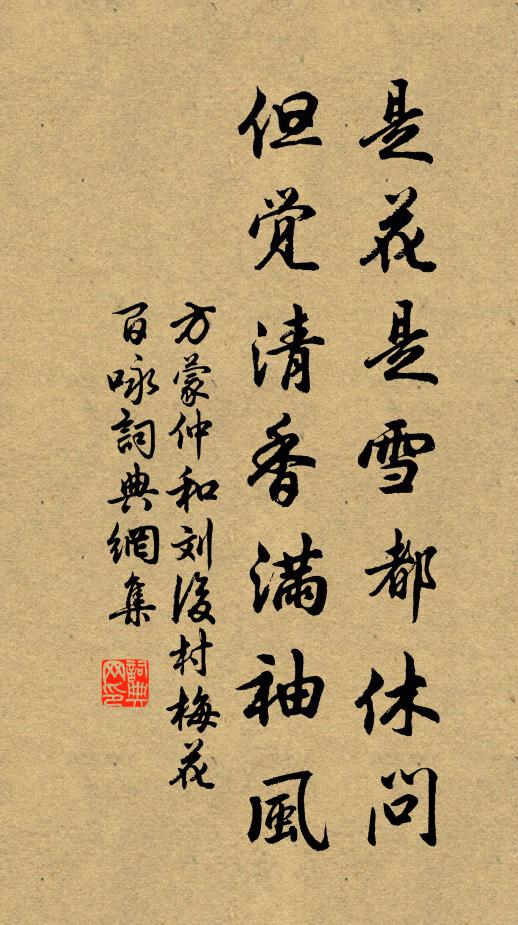 是花是雪都休问
但觉清香满袖風
方蒙仲和刘後村梅花
百咏詞典網集
詞典网印